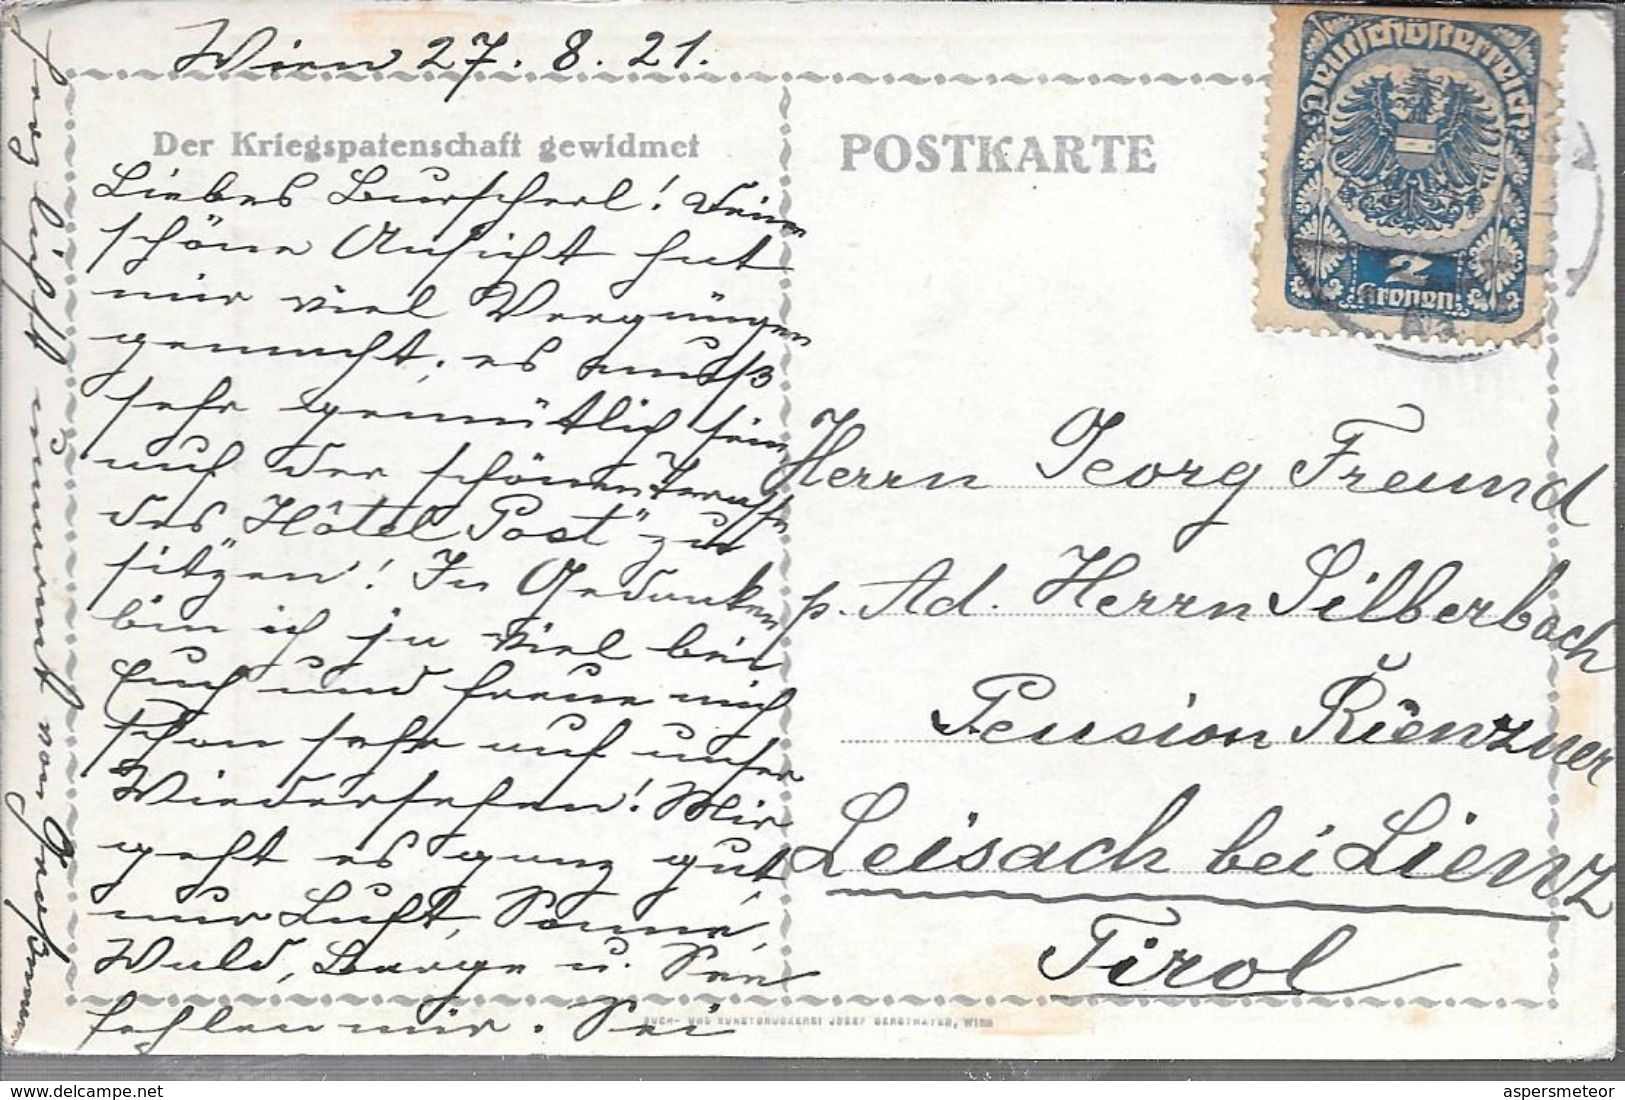 Wien 27. 8. 21.
Der Kriegspatenschaft gewidmet
Liebes Burscherl! Deine
schöne Ansicht hat
mir viel Vergnügen
gemacht, es muß
sehr gemütlich sein
auf der schönen Terasse
des "Hôtel Post" zu
sitzen! In Gedanken
bin ich ja viel bei
Euch und freue mich
schon sehr auf unser
Wiedersehen! Mir
geht es ganz gut,
nur Luft, Sonne,
Wald, Berge u. See
fehlen mir. Sei
herzlichst umarmt von Großmama
POSTKARTE
Deutschösterreich
2
Kronen
Herrn Georg Freund
p. Ad. Herrn Silberbach
Pension Rienzner
Leisach bei Lienz
Tirol
BUCH- UND KUNSTDRUCKEREI JOSEF GERSTMAYER, WIEN
aspersmeteor